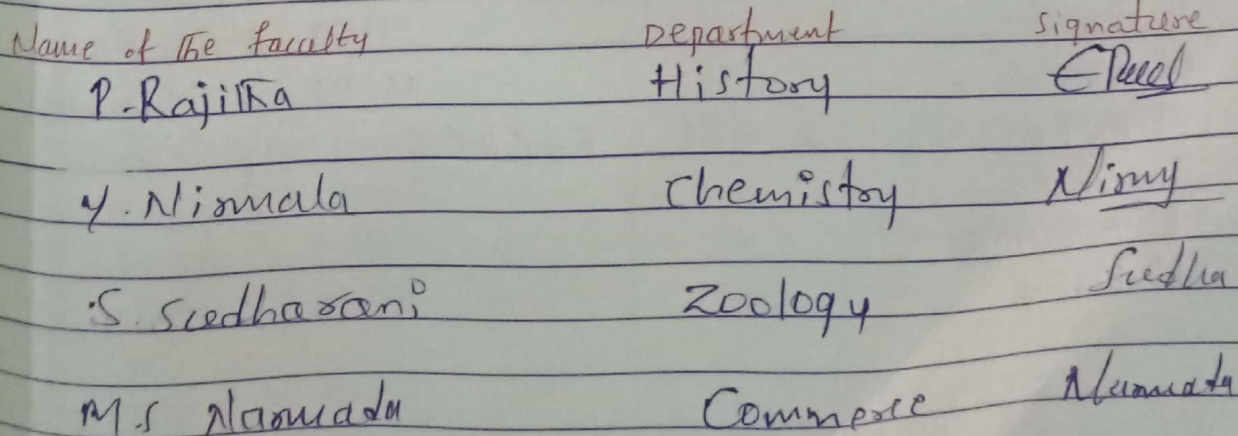 Name of The faculty Department Signature
P. Rajitha History
Y. Nirmala Chemistry Nirmy
S. Sudharani Zoology Sudha
M.S Narmada Commerce Narmada